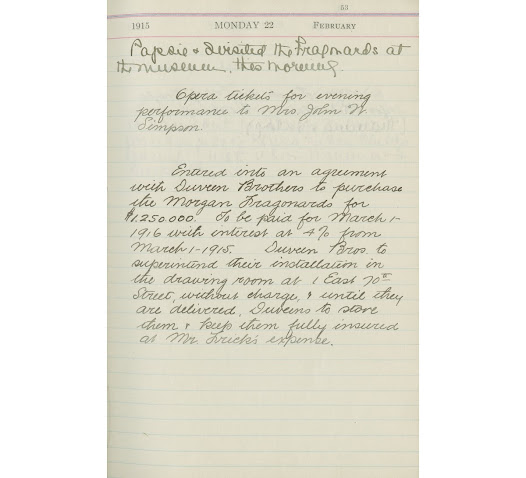 53
1915 MONDAY 22 FEBRUARY
Papsie & I visited the Fragonards at
the museum, this morning.
Opera tickets for evening
performance to Mrs John W.
Simpson.
Entered into an agreement
with Duveen Brothers to purchase
the Morgan Fragonards for
$1.250.000. To be paid for March 1-
1916 with interest at 4% from
March-1-1915. Duveen Bros. to
superintend their installation in
the drawing room at 1 East 70th
Street, without charge, & until they
are delivered, Duveens to store
them & keep them fully insured
at Mr. Frick's expense.